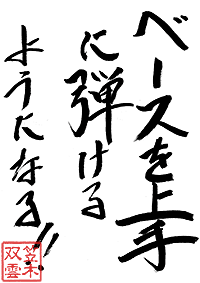 ベースを上手
に弾ける
ようになる!!
笠木
双雲